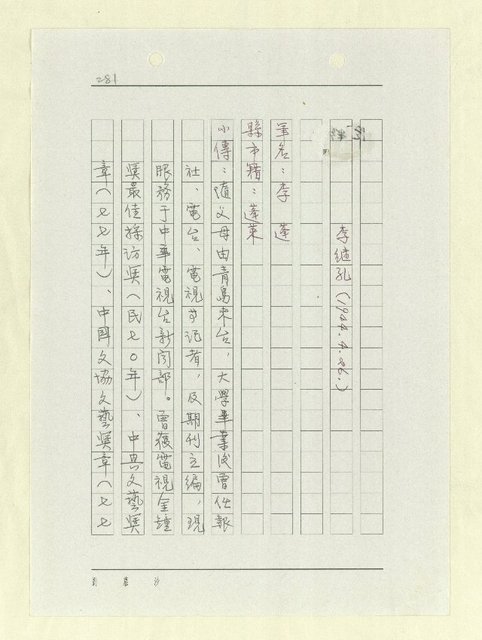 281
李繼孔(1944.4.26.)
筆名：李蓬
縣市籍：蓬萊
小傳：隨父母由青島來台，大學畢業後曾任報
社、電台、電視等記者，及期刊主編，現
服務于中華電視台新聞部。曾獲電視金鐘
獎最佳採訪獎(民七〇年)、中興文藝獎
章(七七年)、中國文協文藝獎章(七七
劉慕沙